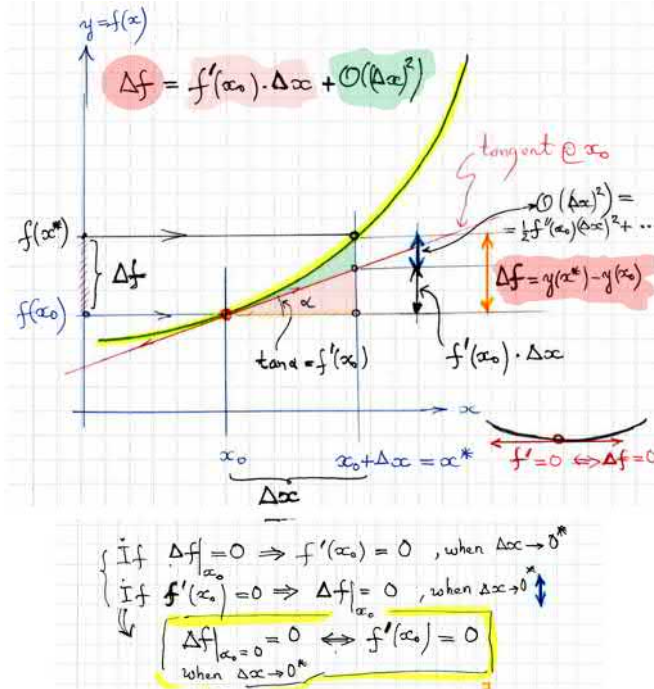 y=f(x)
Δf = f'(x₀)·Δx + O((Δx)²)
tangent @ x₀
O((Δx)²) =
= ½f''(x₀)(Δx)² + ..
f(x*)
Δf
Δf = y(x*) - y(x₀)
f(x₀)
α
tanα = f'(x₀)
f'(x₀) · Δx
x
x₀
x₀+Δx = x*
Δx
f'=0 ⇔ Δf=0
If Δf|x₀ = 0 ⇒ f'(x₀) = 0 , when Δx → 0*
If f'(x₀) = 0 ⇒ Δf|x₀ = 0 , when Δx→0*
Δf|x₀=0 = 0 ⇔ f'(x₀) = 0
when Δx→0*